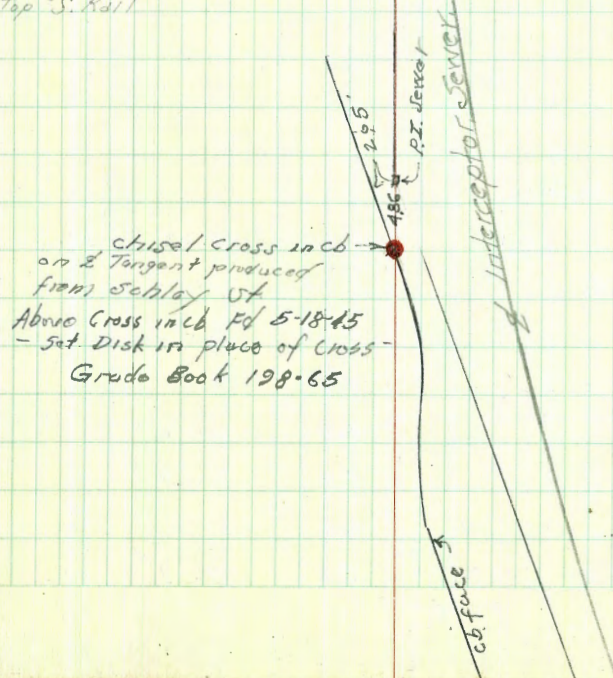 Top S. Rail
2.05'
P.I. Sewer
4.86
Interceptor Sewer
chisel cross in cb
on ⅊ Tangent produced
from Schley St
Above Cross in cb Fd 5-18-45
- Set Disk in place of cross -
Grade Book 198-65
cb. face